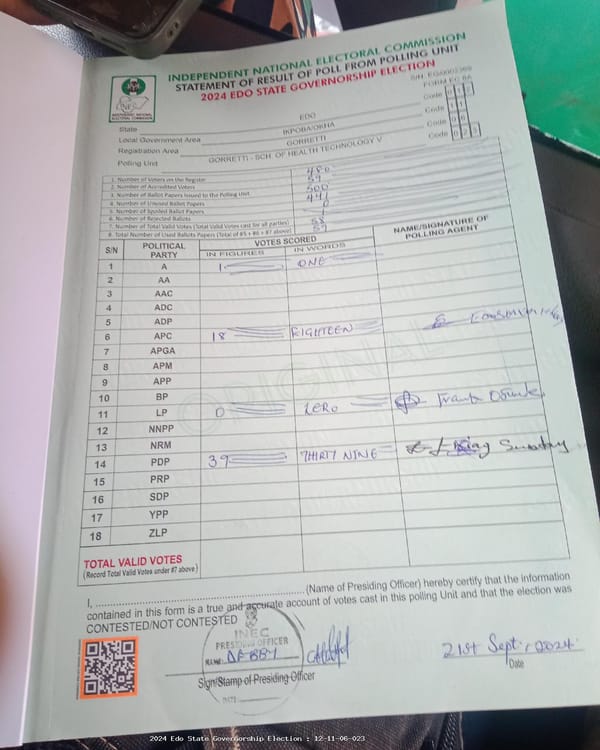 INDEPENDENT NATIONAL ELECTORAL COMMISSION
STATEMENT OF RESULT OF POLL FROM POLLING UNIT
2024 EDO STATE GOVERNORSHIP ELECTION
FORM EC 8A
INEC
INDEPENDENT NATIONAL
ELECTORAL COMMISSION
State EDO Code
Local Government Area IKPOBA/OKHA Code
Registration Area GORRETTI Code
Polling Unit GORRETTI - SCH. OF HEALTH TECHNOLOGY V Code
1. Number of Voters on the Register 480
2. Number of Accredited Voters 59
3. Number of Ballot Papers Issued to the Polling Unit 500
4. Number of Unused Ballot Papers 441
5. Number of Spoiled Ballot Papers
6. Number of Rejected Ballots
7. Number of Total Valid Votes (Total Valid Votes cast for all parties) 58
8. Total Number of Used Ballots Papers (Total of #5 + #6 + #7 above) 59
S/N POLITICAL PARTY VOTES SCORED NAME/SIGNATURE OF POLLING AGENT
IN FIGURES IN WORDS
1 A 1 ONE
2 AA
3 AAC
4 ADC
5 ADP
6 APC 18 EIGHTEEN
7 APGA
8 APM
9 APP
10 BP
11 LP 0 ZERO Frank
12 NNPP
13 NRM
14 PDP 39 THIRTY NINE Sunday
15 PRP
16 SDP
17 YPP
18 ZLP
TOTAL VALID VOTES
(Record Total Valid Votes under #7 above)
ORIGINAL
I, ............................................................(Name of Presiding Officer) hereby certify that the information
contained in this form is a true and accurate account of votes cast in this polling Unit and that the election was
CONTESTED/NOT CONTESTED
INEC
PRESIDING OFFICER
NAME:
DATE
Sign/Stamp of Presiding Officer
21st Sept, 2024
Date
2024 Edo State Governorship Election : 12-11-06-023